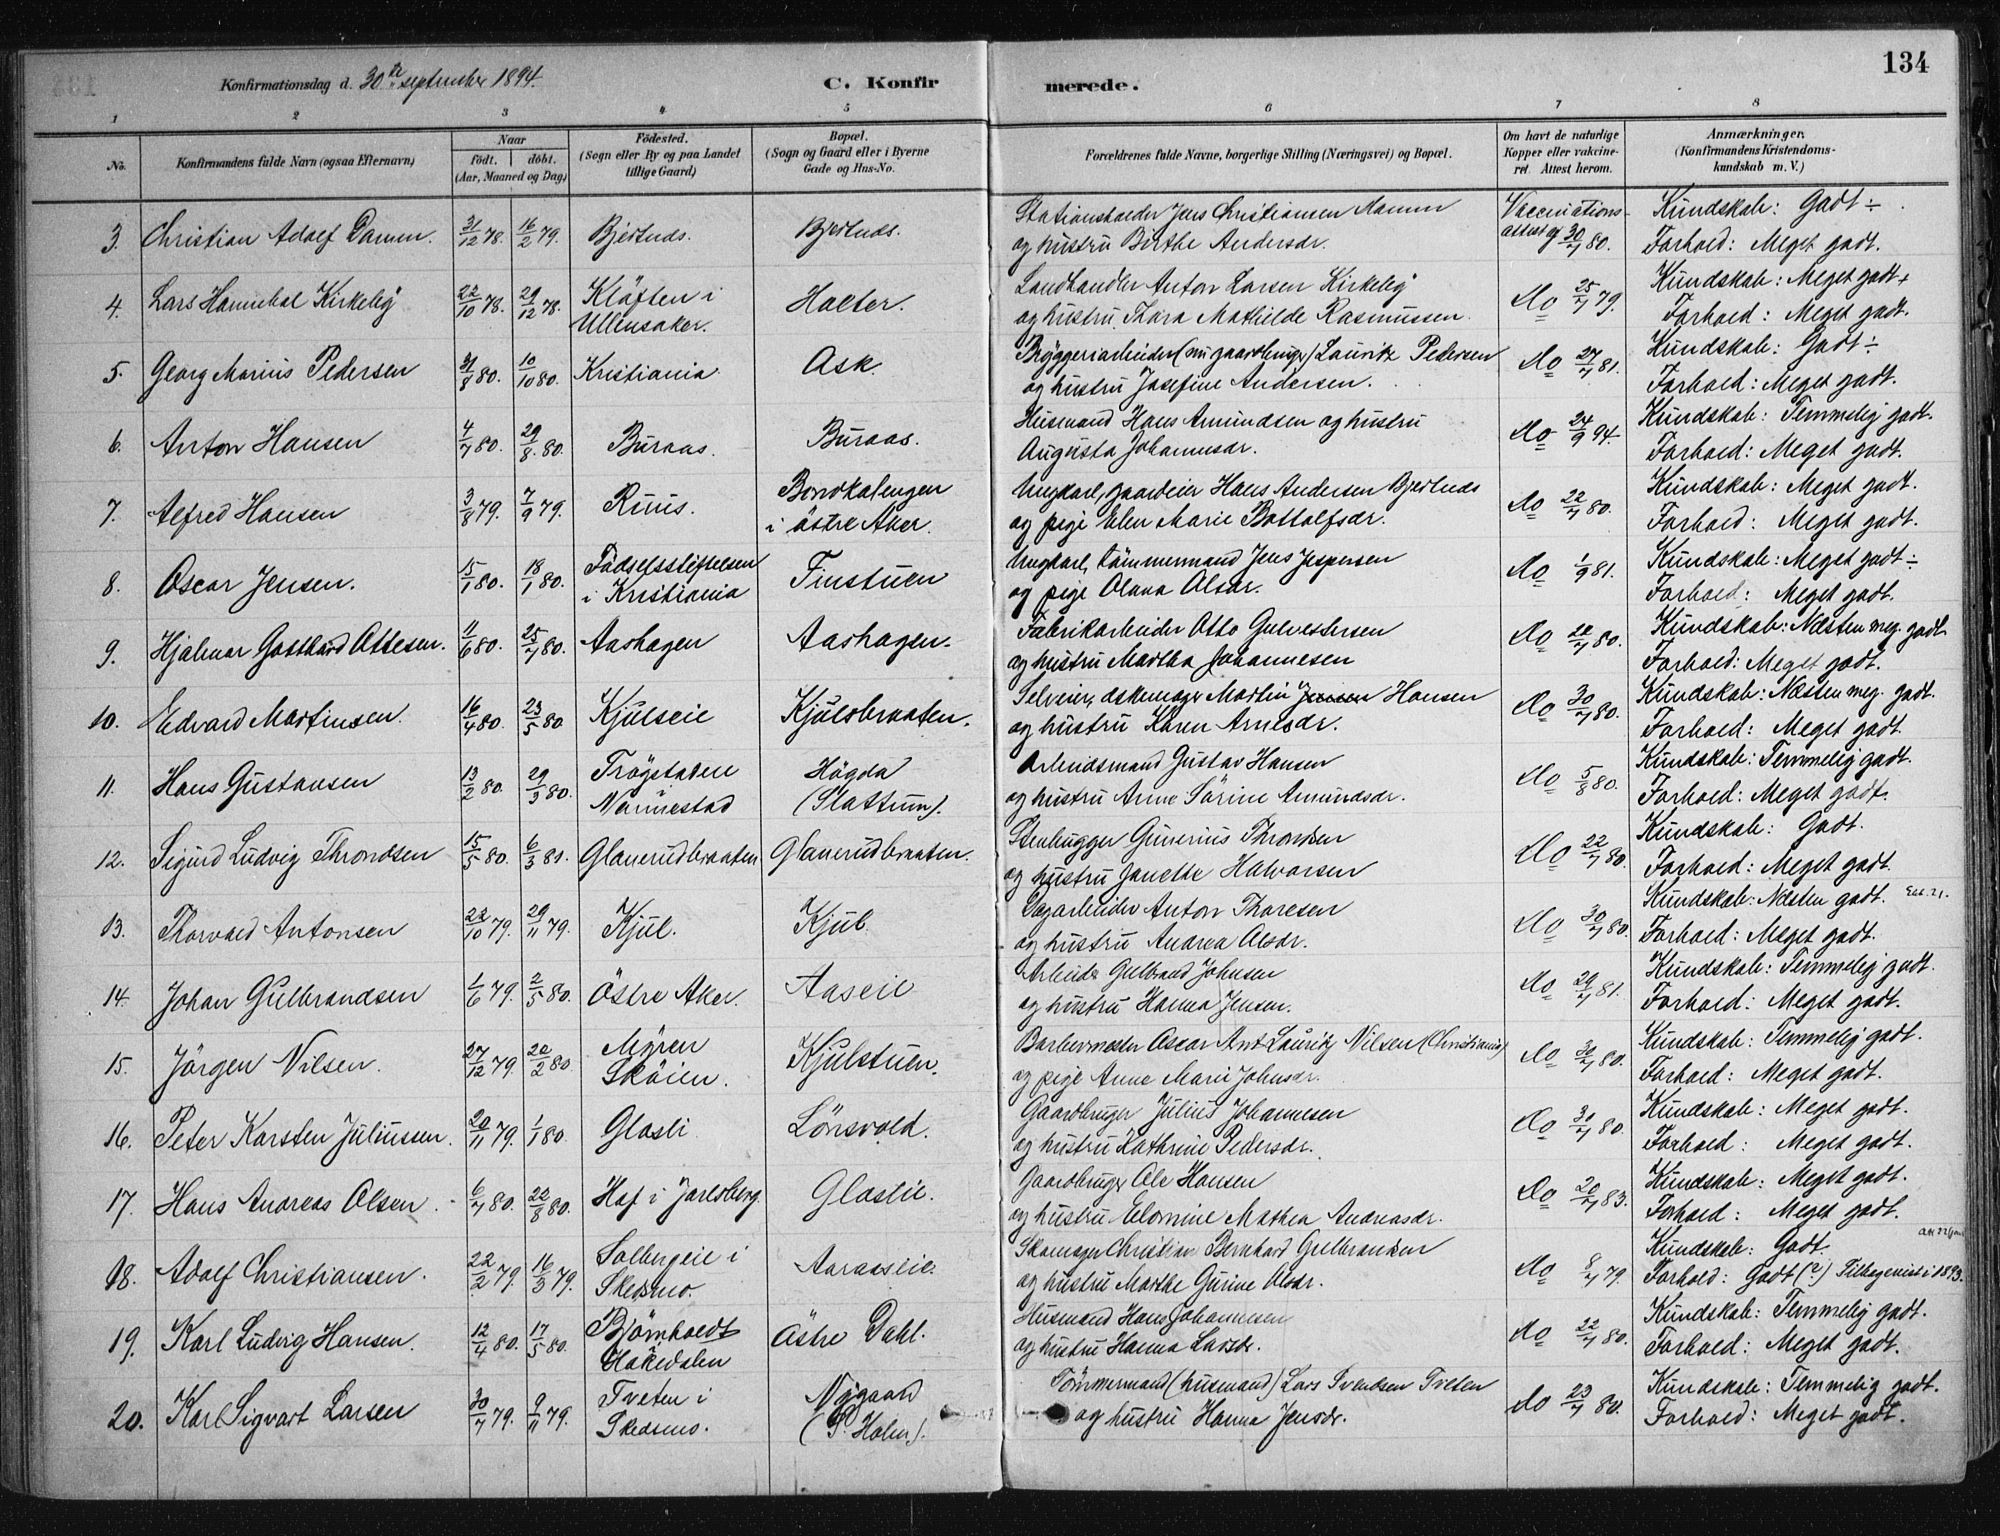 134
Konfirmationsdag d. 30te september 1894.
C. Konfirmerede.
1 2 3 4 5 6 7 8
No.
Konfirmandens fulde Navn (ogsaa Efternavn)
Naar
födt. döbt.
(Aar, Maaned og Dag)
Födested.
(Sogn eller By og paa Landet
tillige Gaard)
Bopæl.
(Sogn og Gaard eller i Byerne
Gade og Hus-No.
Forældrenes fulde Navne, borgerlige Stilling (Næringsvei) og Bopæl.
Om havt de naturlige
Kopper eller vaccine-
ret Attest herom.
Anmærkninger.
(Konfirmandens Kristendoms-
kundskab m.V.)
3. Christian Adolf Damm. 31/12 78. 16/2 79. Bjertnds. Bjertnds. Stationsholder Jens Christiansen Damm Vaccinations- Kundskab: Godt ÷
og hustru Birthe Andersdr. attest af 30/7 80. Forhold: Meget godt.
4. Lars Hannibal Kirkeby 22/10 78. 29/12 78. Kløften i Holter. Landhandler Anton Larsen Kirkeby Do 25/7 79. Kundskab: Meget godt +
Ullensaker. og hustru Thora Mathilde Rasmussen Forhold: Meget godt.
5. Georg Marius Pedersen 31/8 80. 10/10 80. Kristiania Ask. Bryggeriarbeider (nu gaardbruger) Lauritz Pedersen Do 27/7 81. Kundskab: Godt ÷
og hustru Josefine Andersen. Forhold: Meget godt.
6. Anton Hansen 4/7 80. 29/8 80. Buraas. Buraas. Husmand Hans Amundsen og hustru Do 24/9 94. Kundskab: Temmelig godt.
Augusta Johannesdr. Forhold: Meget godt.
7. Alfred Hansen 3/8 79. 7/9 79. Ruus. Bondkalengen Ungkarl, gaardeier Hans Andersen Bjertnds Do 22/7 80. Kundskab: Meget godt.
i östre Aker. og pige Elen Marie Bottolfsdr. Forhold: Meget godt.
8. Oscar Jensen. 15/1 80. 18/1 80. Födselsstiftelsen Finstuen Ungkarl, tömmermand Jens Jespersen Do 1/9 81. Kundskab: Meget godt ÷
i Kristiania og pige Olava Olsdr. Forhold: Meget godt.
9. Hjalmar Gotthard Ottesen. 11/6 80. 25/7 80. Aashagen Aashagen. Fabrikarbeider Otto Gulvestersen Do 22/7 80. Kundskab: Næsten meg. godt
og hustru Martha Johannesen Forhold: Meget godt.
10. Edvard Martinsen. 16/4 80. 23/5 80. Kjulseie Kjulsbraaten. Selveier, skomager Martin Jensen Hansen Do 30/7 80. Kundskab: Næsten meg. godt.
og hustru Karen Arnesdr. Forhold: Meget godt.
11. Hans Gustavsen 13/2 80. 29/3 80. Trøgstadeie Högda Arbeidsmand Gustav Hansen Do 5/8 80. Kundskab: Temmelig godt.
Nannestad (Slattum). og hustru Anne Sörine Amundsdr. Forhold: Meget godt.
12. Sigurd Ludvig Throndsen 15/5 80. 6/3 81. Glanerudbraaten Glanerudbraaten. Stenhugger Gunerius Throndsen Do 22/7 80. Kundskab: Godt.
og hustru Janette Halvorsen Forhold: Meget godt.
13. Thorvald Antonsen 22/10 79. 29/11 79. Kjul. Kjul. Dagarbeider Anton Thoresen Do 30/7 80. Kundskab: Næsten godt.
og hustru Andrea Olsdr. Forhold: Meget godt.
14. Johan Gulbrandsen 1/6 79. 2/5 80. Östre Aker. Aaseie Arbeider Gulbrand Johnsen Do 29/7 81. Kundskab: Temmelig godt.
og hustru Hanna Jensen. Forhold: Meget godt.
15. Jörgen Nilsen. 27/12 79. 22/2 80. Myren Kjulstuen. Barbermester Oscar Ant. Lauritz Nilsen (Christiania) Do 30/7 80. Kundskab: Temmelig godt.
Skøien. og pige Anne Marie Johnsdr. Forhold: Meget godt.
16. Peter Karsten Juliussen. 20/11 79. 1/1 80. Glosli Lönsvold. Gaardbruger Julius Johannesen Do 30/7 80. Kundskab: Meget godt.
og hustru Kathrine Pedersdr. Forhold: Meget godt.
17. Hans Andreas Olsen. 6/7 80. 22/8 80. Hof i Jarlsberg. Gloslie. Gaardbruger Ole Hansen Do 20/7 83. Kundskab: Meget godt.
og hustru Elomine Mathea Andreasdr. Forhold: Meget godt.
18. Adolf Christiansen. 22/2 79. 16/3 79. Solbergeie i Aaraaseie. Skomager Christian Bernhard Gulbrandsen Do 8/7 79. Kundskab: Godt.
Skedsmo. og hustru Marthe Gurine Olsdr. Forhold: Godt (?) Tilbagevist i 1893.
19. Karl Ludvig Hansen. 12/4 80. 17/5 80. Björnholdt Östre Dahl. Husmand Hans Johannesen Do 22/7 80. Kundskab: Temmelig godt.
Hakedalen og hustru Hanna Larsdr. Forhold: Meget godt.
20. Karl Sigvart Larsen 30/7 79. 9/11 79. Tveten i Nygaard Tömmermand (husmand) Lars Svendsen Tveten Do 23/7 80. Kundskab: Temmelig godt.
Skedsmo. (P. Holm). og hustru Hanna Jensdr. Forhold: Meget godt.